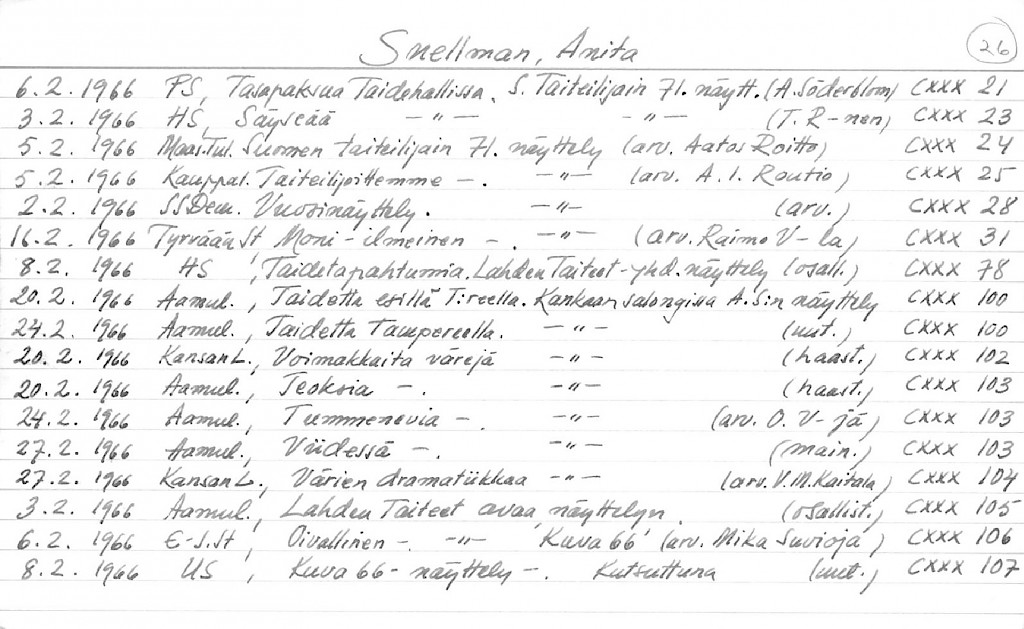 Snellman, Anita
26
6.2.1966 PS, Tasapaksua Taidehallissa. S. Taiteilijain 71. näytt. (A. Söderblom) CXXX 21
3.2.1966 HS, Säyseää -"- -"- (T. R-nen) CXXX 23
5.2.1966 Maas.Tul. Suomen taiteilijain 71. näyttely (arv. Aatos Roitto) CXXX 24
5.2.1966 Kauppal. Taiteilijoittemme -. -"- (arv. A. I. Routio) CXXX 25
2.2.1966 SSDem. Vuosinäyttely. -"- (arv.) CXXX 28
16.2.1966 Tyrvään St Moni-ilmeinen -. -"- (arv. Raimo V-la) CXXX 31
8.2.1966 HS, Taidetapahtumia. Lahden Taiteet-yhd. näyttely (osall.) CXXX 78
20.2.1966 Aamul., Taidetta esillä T:reella. Kankaan salongissa A.S:n näyttely CXXX 100
24.2.1966 Aamul., Taidetta Tampereella. -"- (uut.) CXXX 100
20.2.1966 Kansan L., Voimakkaita värejä -"- (haast.) CXXX 102
20.2.1966 Aamul., Teoksia -. -"- (haast.) CXXX 103
24.2.1966 Aamul., Tummenevia -. -"- (arv. O. V-jä) CXXX 103
27.2.1966 Aamul., Viidessä -. -"- (main.) CXXX 103
27.2.1966 Kansan L., Värien dramatiikkaa -"- (arv. V.M. Kaitala) CXXX 104
3.2.1966 Aamul., Lahden Taiteet avaa näyttelyn. (osallist.) CXXX 105
6.2.1966 E-S.St, Oivallinen -. -"- 'Kuva 66' (arv. Mika Suvioja) CXXX 106
8.2.1966 US, Kuva 66-näyttely -. Kutsuttuna (uut.) CXXX 107